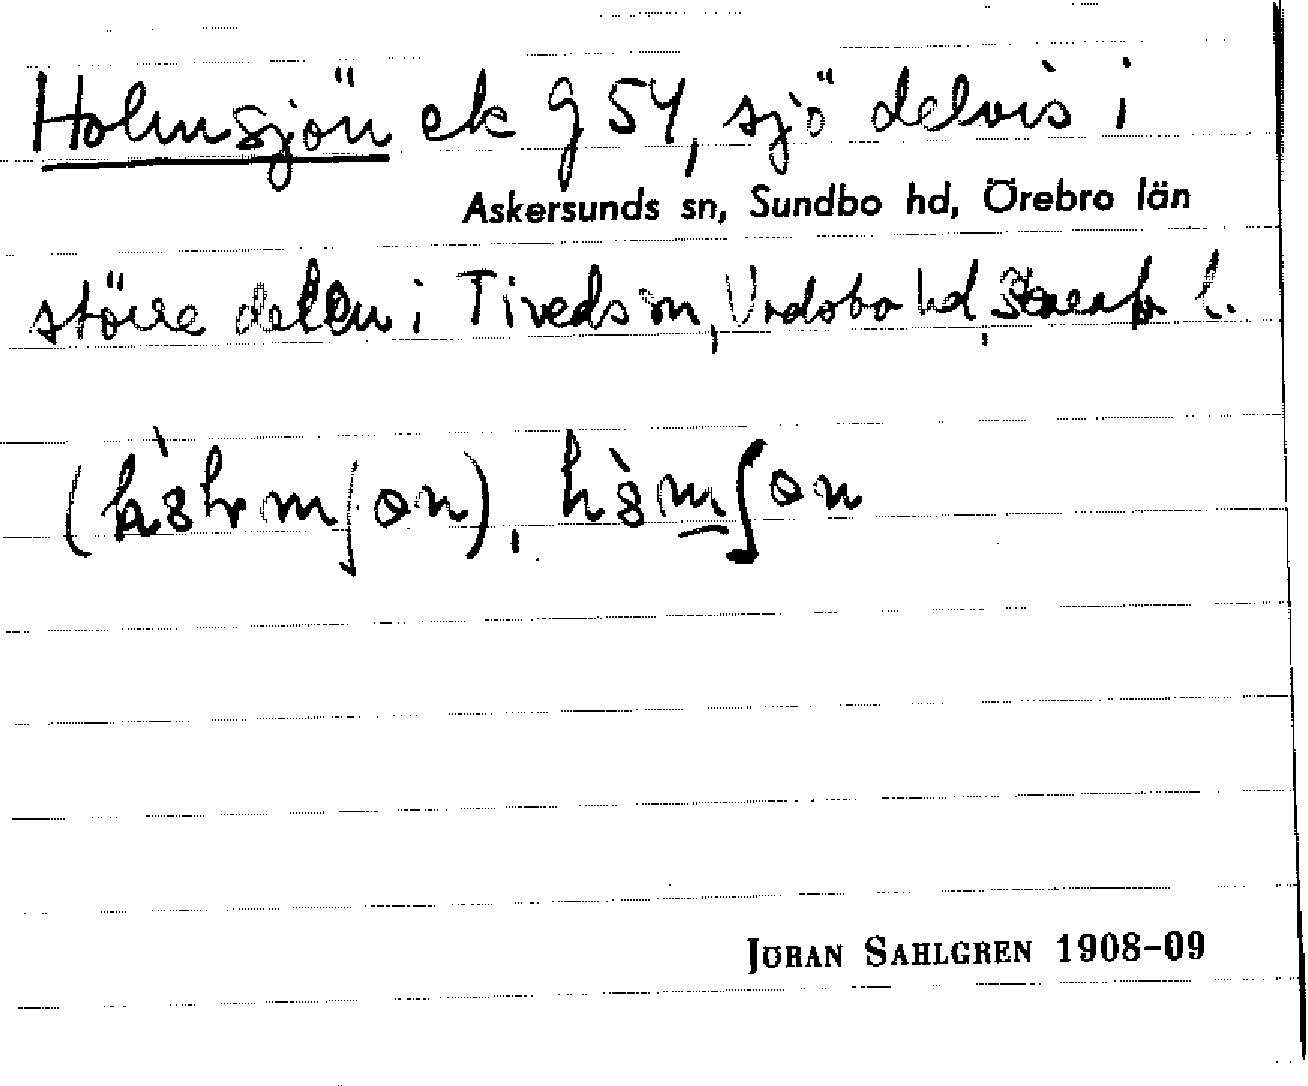 Holmsjön ek 9 54, sjö delvis i
Askersunds sn, Sundbo hd, Örebro län
större delen i Tiveds sn, Vadsbo hd, Skarab. l.
JÖRAN SAHLGREN 1908-09